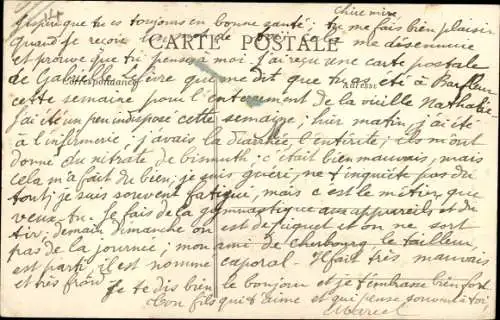 Chère mère
j'espère que tu es toujours en bonne santé; tu me fais bien plaisir
quand je reçois de toi, cela me désennuie
CARTE POSTALE
et prouve que tu penses à moi. J'ai reçu une carte postale
de Gabrielle Lefèvre qui me dit que tu as été à Barfleur
Correspondance
Adresse
cette semaine pour l'enterrement de la vieille Nathalie
J'ai été un peu indispose cette semaine; hier matin, j'ai été
à l'infirmerie; j'avais la diarrhée, l'entérite; ils m'ont
donné du nitrate de bismuth; c'était bien mauvais, mais
cela m'a fait du bien; je suis guéri, ne t'inquiète pas du
tout; je suis souvent fatigué, mais c'est le métier, que
veux-tu. Je fais de la gymnastique aux appareils et du
tir; demain dimanche on est de piquet et on ne sort
pas de la journée; mon ami de Cherbourg, le tailleur,
est parti, il est nommé caporal. Il fait très mauvais
et très froid. Je te dis bien le bonjour et je t'embrasse bien fort
Ton fils qui t'aime et qui pense souvent à toi,
Marcel